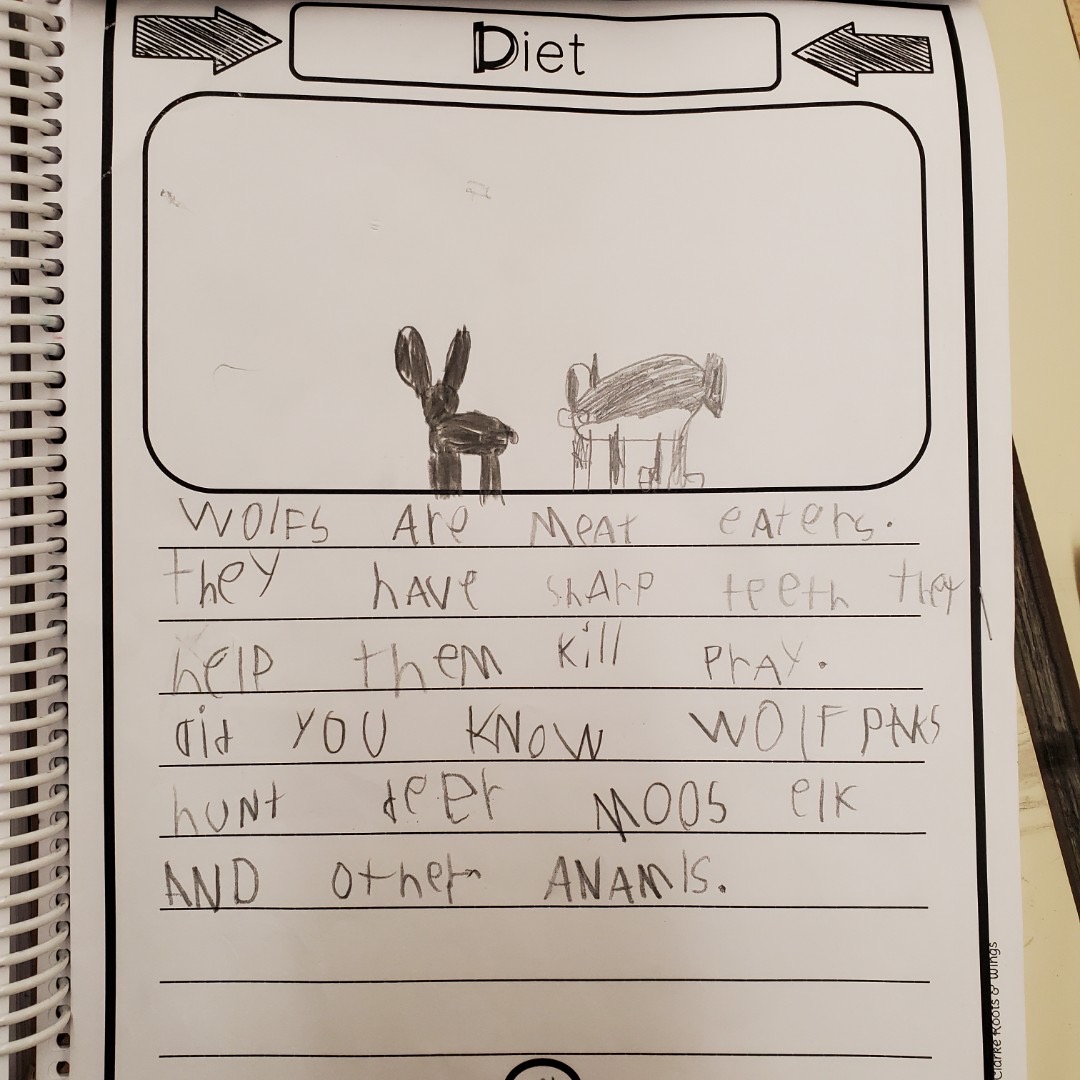 Diet
WOlFS Are Meat eaters.
they have shArp teeth they
help them kill prAy.
did YOU KNow WOlF pAKS
hunt deer MOOS elk
AND other ANAMls.
Clarke Roots & Wings